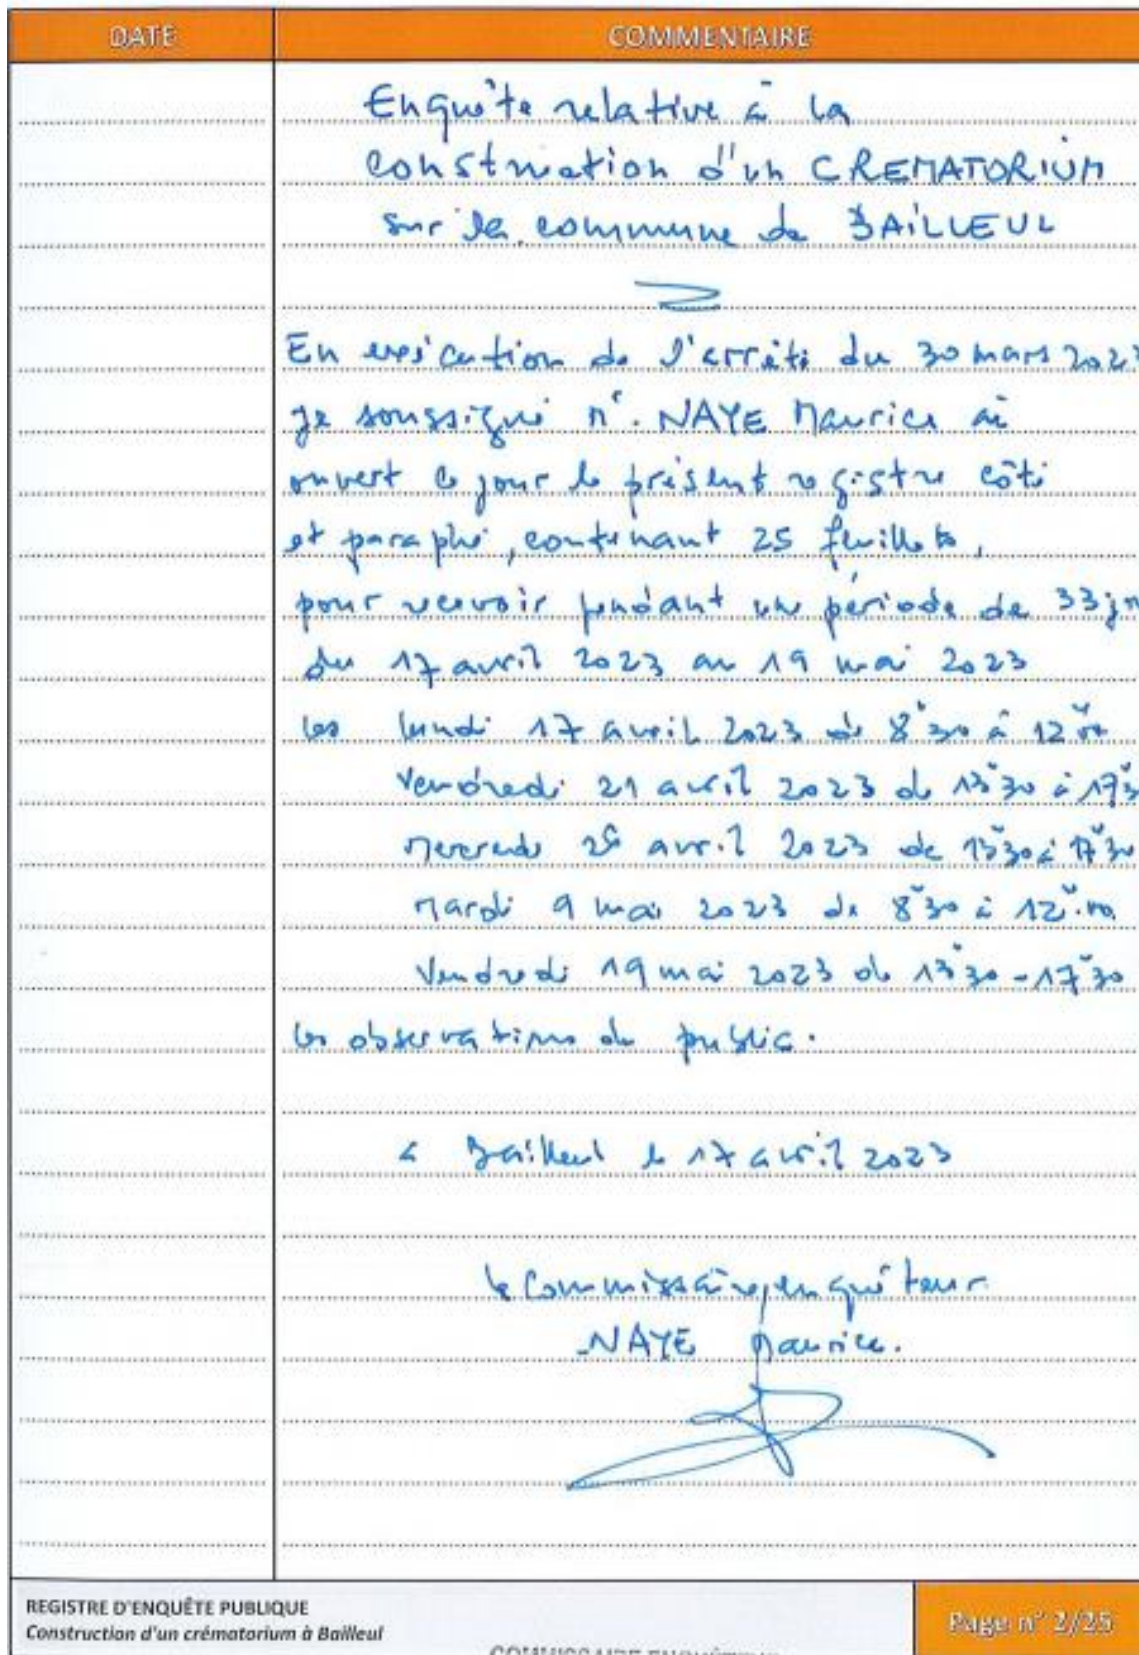 DATE
COMMENTAIRE
Enquête relative à la
construction d'un CREMATORIUM
sur la commune de BAILLEUL
En exécution de l'arrêté du 30 mars 2023
Je soussigné Mr. NAYE Maurice ai
ouvert ce jour le présent registre côté
et paraphé, contenant 25 feuillets,
pour recevoir pendant une période de 33 jrs
du 17 avril 2023 au 19 mai 2023
les lundi 17 avril 2023 de 8h30 à 12h00
Vendredi 21 avril 2023 de 13h30 à 17h30
Mercredi 26 avril 2023 de 13h30 à 17h30
Mardi 9 mai 2023 de 8h30 à 12h.00
Vendredi 19 mai 2023 de 13h30 - 17h30
les observations du public.
à Bailleul le 17 avril 2023
le Commissaire enquêteur
NAYE Maurice.
REGISTRE D'ENQUÊTE PUBLIQUE
Construction d'un crématorium à Bailleul
Page n° 2/25
COMMISSAIRE ENQUÊTEUR